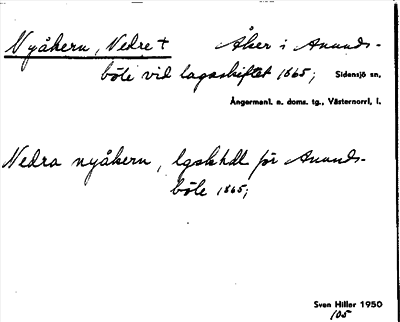 Nyåkern, Nedre + Åker i Anunds-
böle vid lagaskiftet 1865; Sidensjö sn,
Ångermanl. n. doms. tg., Västernorrl. l.
Nedra nyåkern, lgskhdl för Anunds-
böle 1865;
Sven Hiller 1950
105